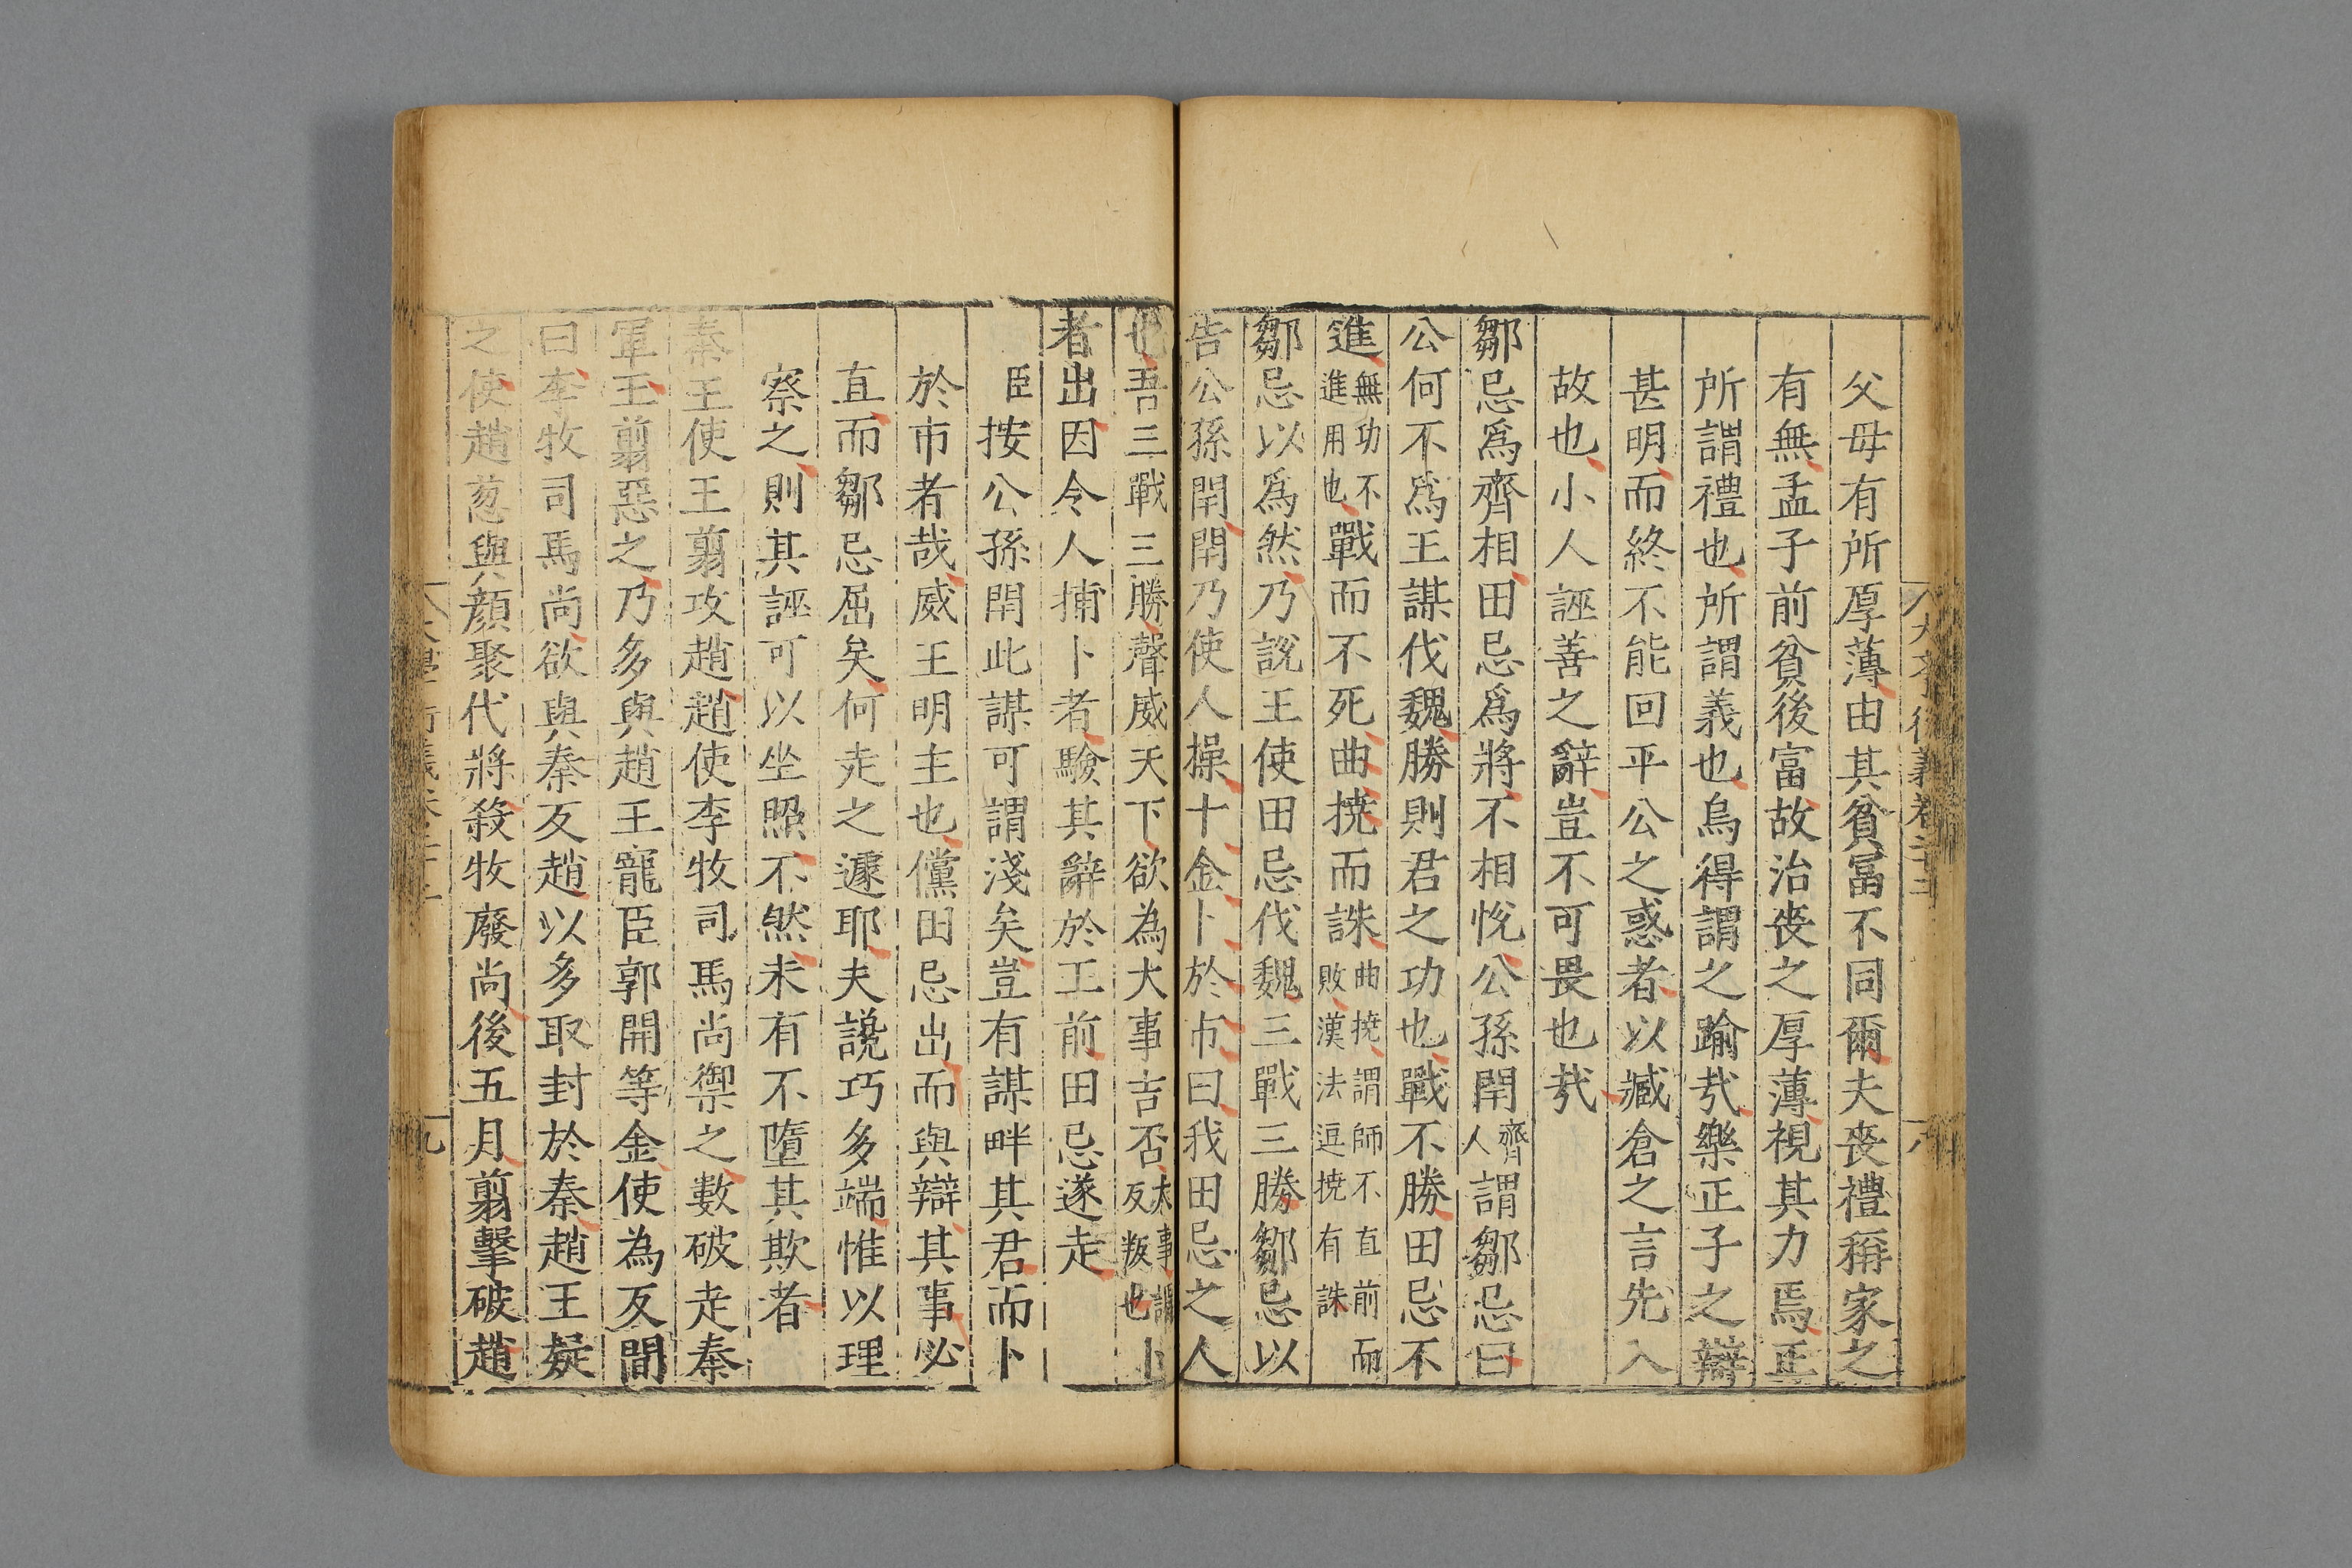 父母有所厚薄由其貧冨不同爾夫喪禮稱家之
有無孟子前貧後富故治喪之厚薄視其力焉正
所謂禮也所謂義也烏得謂之踰㦲樂正子之辯
甚明而終不能回平公之惑者以臧倉之言先入
故也小人誣善之辭豈不可畏也㦲
鄒忌爲齊相田忌爲將不相悅公孫閈齊人謂鄒忌曰
公何不爲王謀伐魏勝則君之功也戰不勝田忌不
進無功不進用也戰而不死曲撓而誅曲撓謂師不直前而敗漢法逗撓有誅
鄒忌以爲然乃說王使田忌伐魏三戰三勝鄒忌以
告公孫閈閈乃使人操十金卜於市曰我田忌之人
也吾三戰三勝聲威天下欲為大事吉否大事謂反叛也卜
者出因令人捕卜者驗其辭於王前田忌遂走
臣按公孫閈此謀可謂淺矣豈有謀畔其君而卜
於市者哉威王明主也儻田忌出而與辯其事必
直而鄒忌屈矣何走之遽耶夫讒巧多端惟以理
察之則其誣可以坐照不然未有不墮其欺者
秦王使王翦攻趙趙使李牧司馬尚禦之數破走秦
軍王翦惡之乃多與趙王寵臣郭開等金使為反間
曰李牧司馬尚欲與秦反趙以多取封於秦趙王疑
之使趙葱與顔聚代將殺牧廢尚後五月翦擊破趙
九